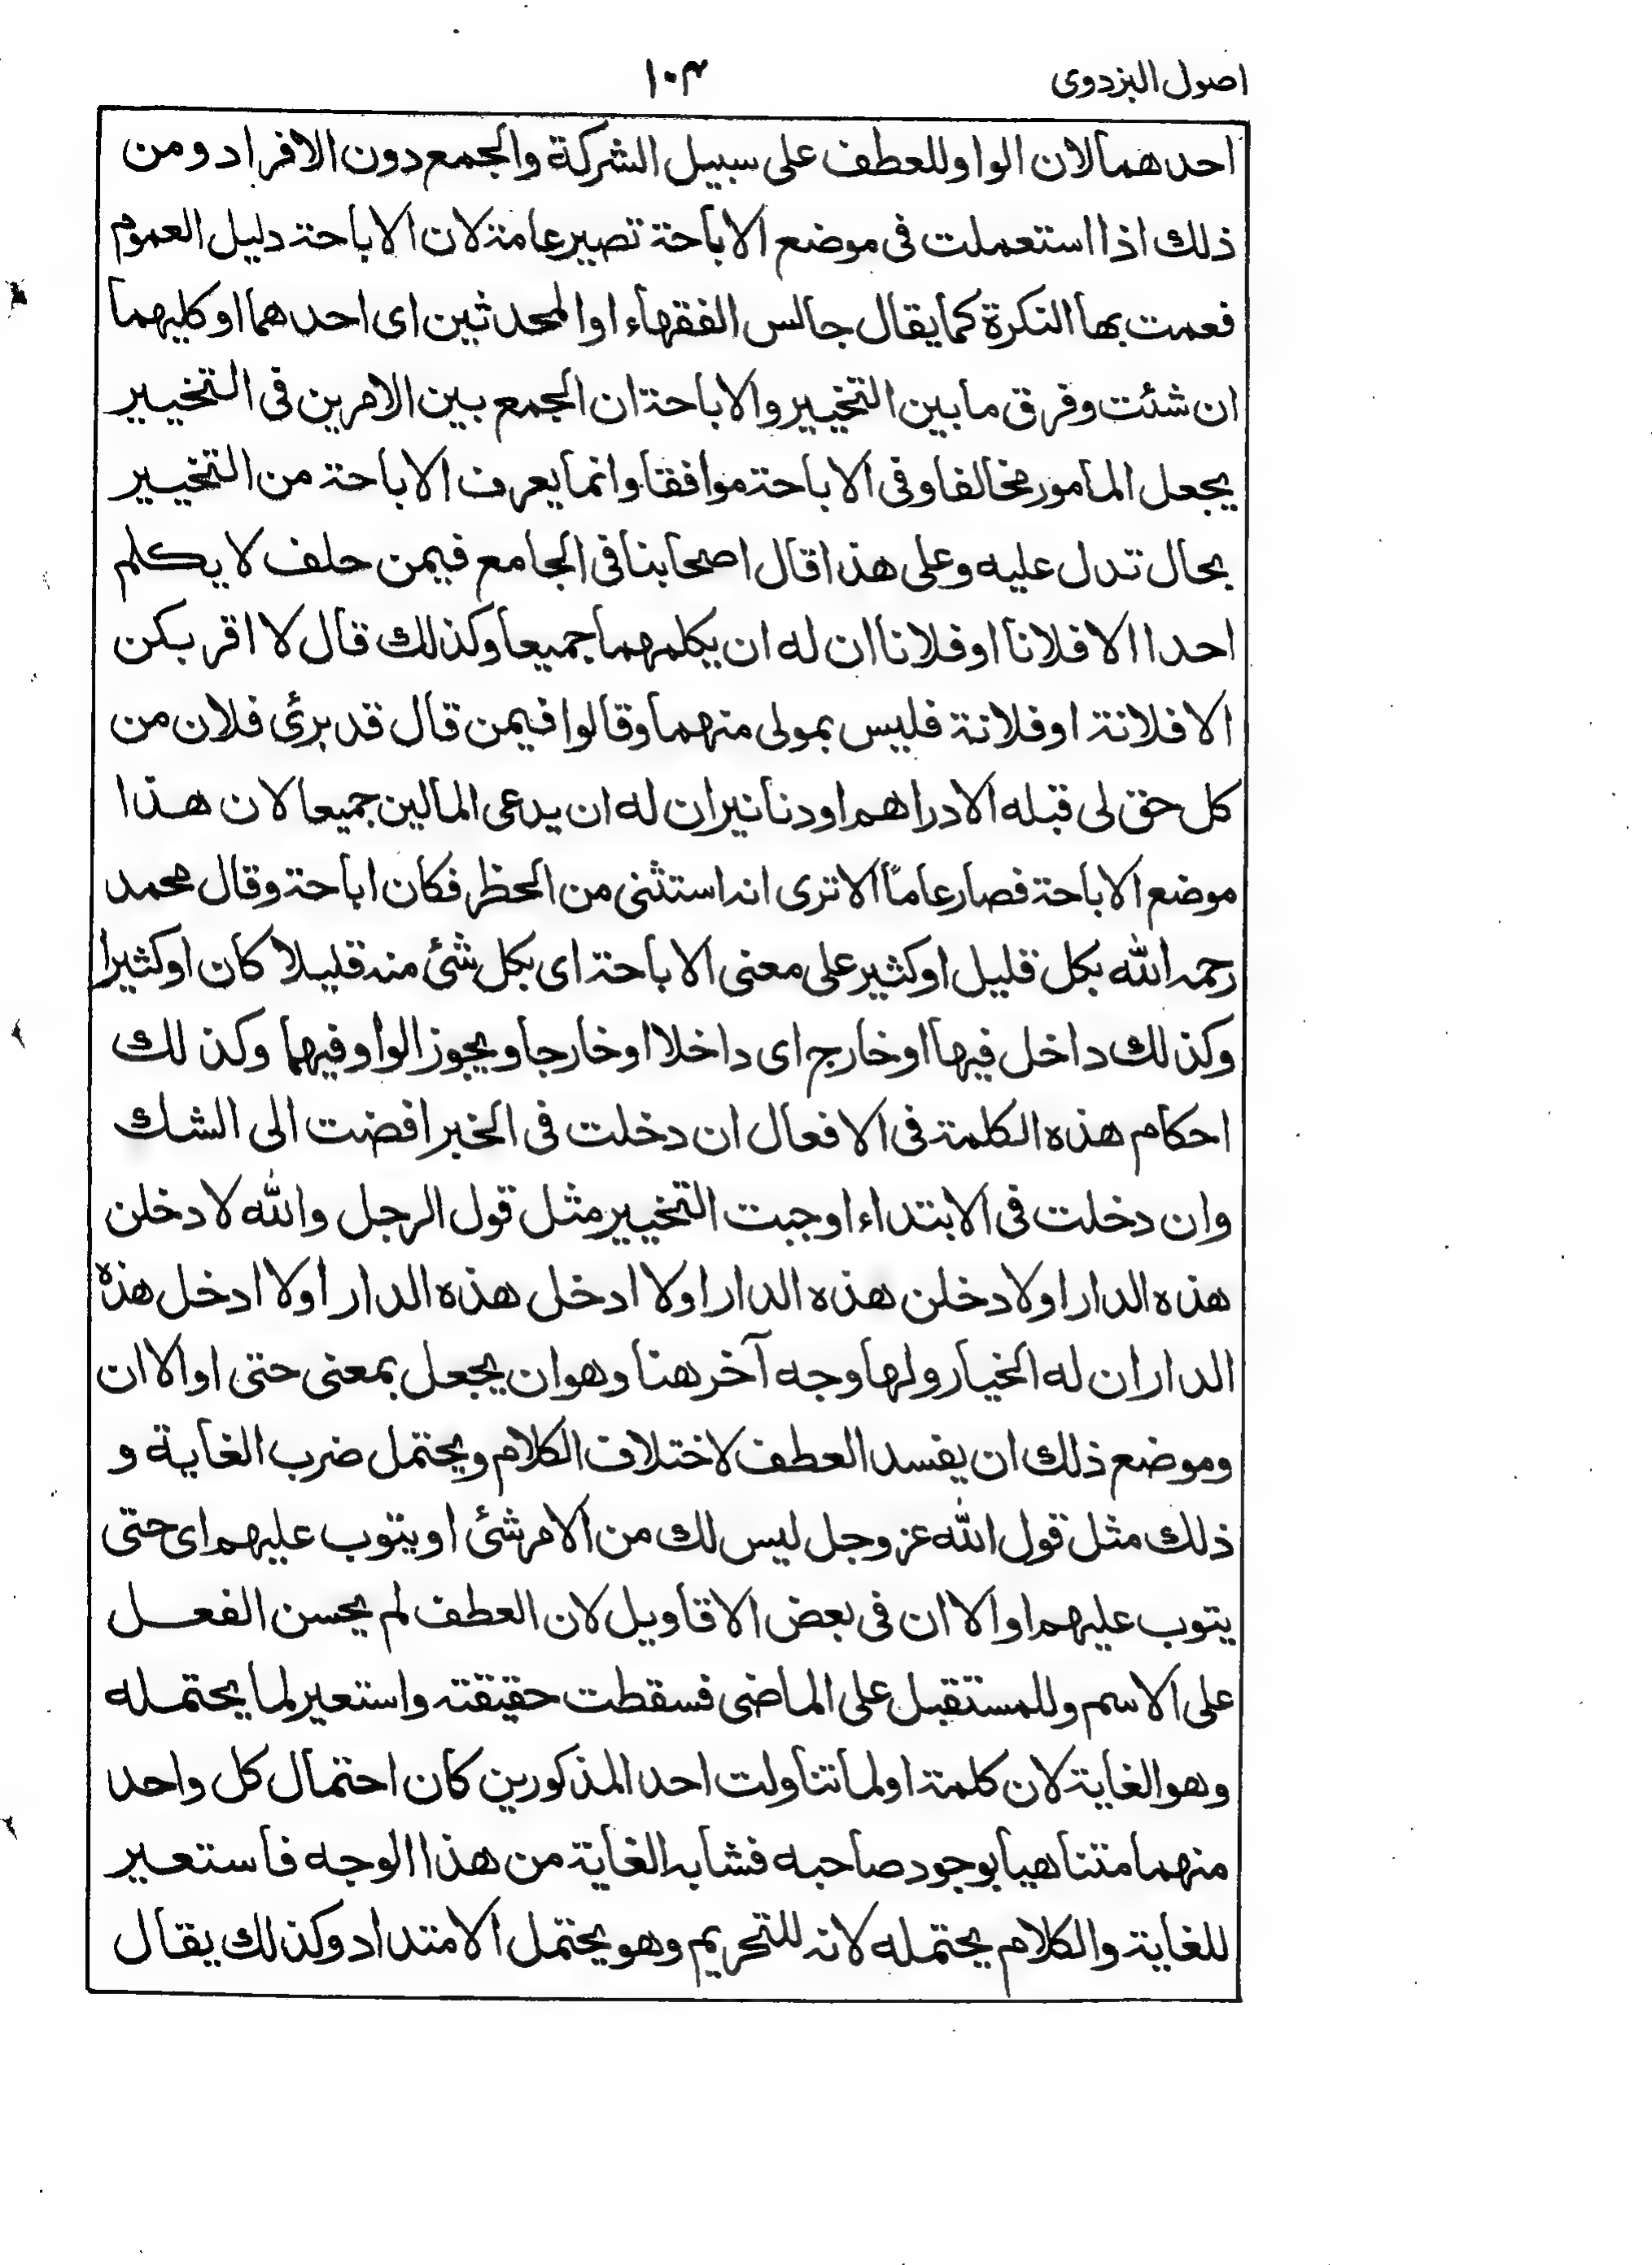 اصول البزدوى
١٠٤
احدهما لان الواو للعطف على سبيل الشركة والجمع دون الافراد ومن
ذلك اذا استعملت فى موضع الاباحة تصير عامة لان الاباحة دليل العموم
فعمت بها النكرة كما يقال جالس الفقهاء او المحدثين اى احدهما او كليهما
ان شئت وفرق ما بين التخيير والاباحة ان الجمع بين الامرين فى التخيير
يجعل المامور مخالفا وفى الاباحة موافقا وانما يعرف الاباحة من التخيير
بحال تدل عليه وعلى هذا قال اصحابنا فى الجامع فيمن حلف لا يكلم
احدا الا فلانا او فلانا ان له ان يكلمهما جميعا وكذلك قال لا اقربكن
الا فلانة او فلانة فليس بمولى منهما وقالوا فيمن قال قد برئ فلان من
كل حق لى قبله الا دراهم او دنانير ان له ان يدعى المالين جميعا لان هذا
موضع الاباحة فصار عاماً الا ترى انه استثنى من الحظر فكان اباحة وقال محمد
رحمه الله بكل قليل او كثير على معنى الاباحة اى بكل شئ منه قليلا كان او كثيرا
وكذلك داخل فيها او خارج اى داخلا او خارجا ويجوز الواو فيهما وكذلك
احكام هذه الكلمة فى الافعال ان دخلت فى الخبر افضت الى الشك
وان دخلت فى الابتداء اوجبت التخيير مثل قول الرجل والله لادخلن
هذه الدار او لادخلن هذه الدار او لا ادخل هذه الدار او لا ادخل هذه
الدار ان له الخيار ولها وجه آخر هنا وهو ان يجعل بمعنى حتى او الا ان
وموضع ذلك ان يفسد العطف لاختلاف الكلام ويحتمل ضرب الغاية و
ذلك مثل قول الله عز وجل ليس لك من الامر شئ او يتوب عليهم اى حتى
يتوب عليهم او الا ان فى بعض الاقاويل لان العطف لم يحسن الفعل
على الاسم وللمستقبل على الماضى فسقطت حقيقته واستعير لما يحتمله
وهو الغاية لان كلمة او لما تناولت احد المذكورين كان احتمال كل واحد
منهما متناهيا بوجود صاحبه فشابه الغاية من هذا الوجه فاستعير
للغاية والكلام يحتمله لانه للتحريم وهو يحتمل الامتداد وكذلك يقال